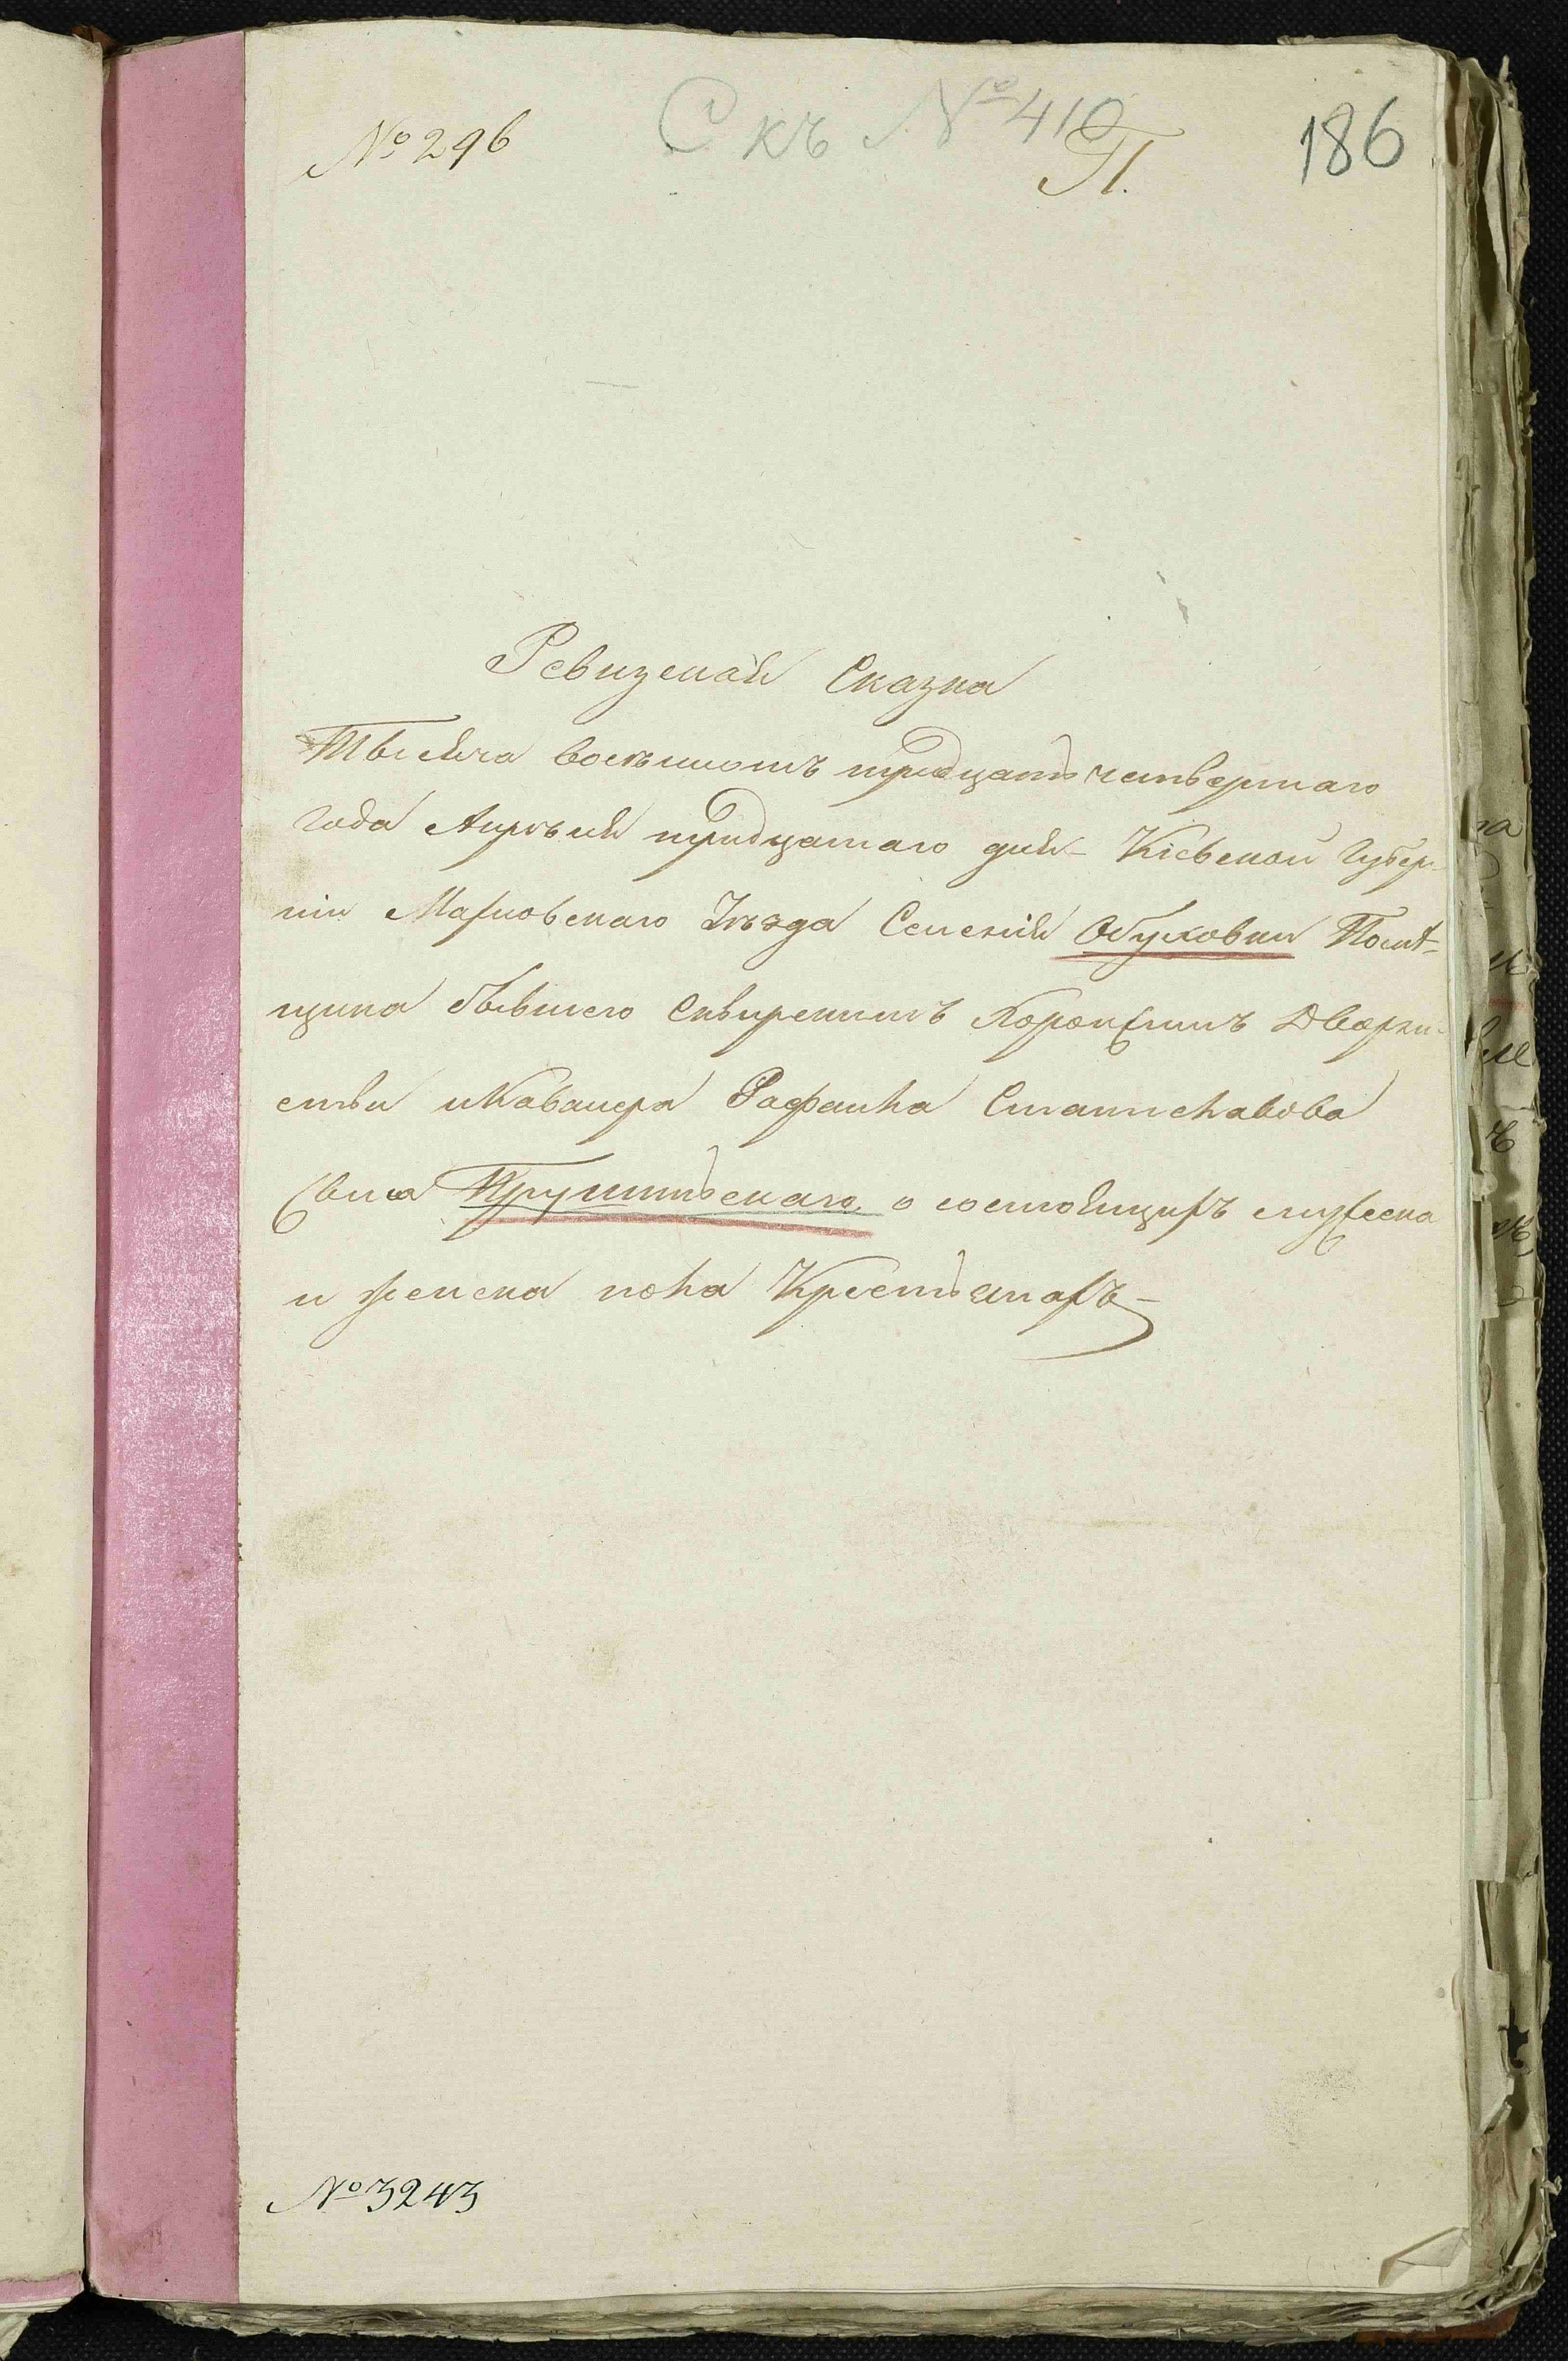 № 296
С къ № 410
П.
186
Ревизская Сказка
Тысяча восемьсотъ тридцать четвертаго
года Апрѣля тридцатаго дня Кіевской Губер-
ніи Махновскаго Уѣзда Селенія Обуховки Помѣ-
щика бывшего Сквирскимъ Хоронжимъ Дворян-
ства и Кавалера Рафаила Станиславова
Сына Прушинскаго о состоящихъ мужеска
и женска пола Крестьянахъ
№ 3243